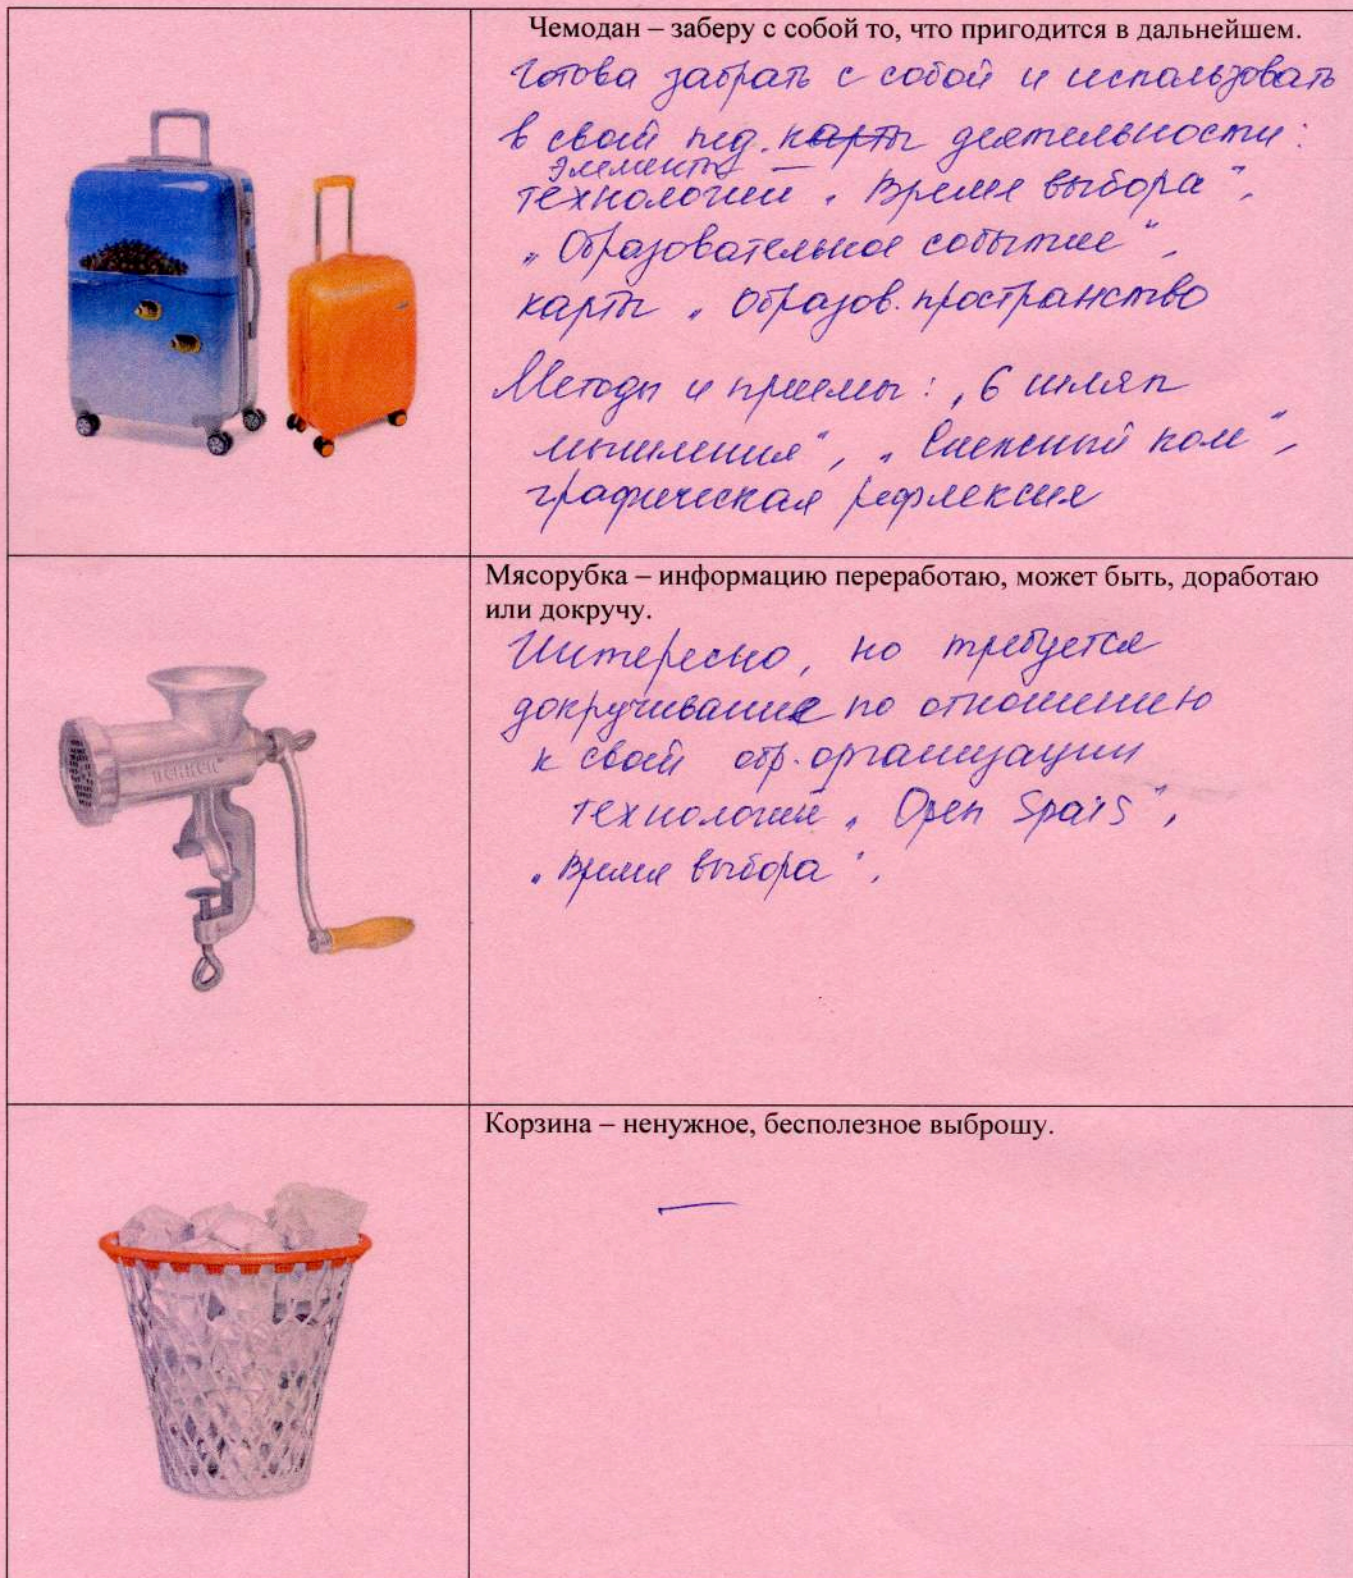 Чемодан – заберу с собой то, что пригодится в дальнейшем.
Готова забрать с собой и использовать
в свой пед. карты деятельности:
элементы
технологий „Время выбора",
„Образовательное событие",
карты „Образов. пространство
Методы и приемы: „6 шляп
мышления", „Снежный ком",
графическая рефлексия
Мясорубка – информацию переработаю, может быть, доработаю
или докручу.
Интересно, но требуется
докручивание по отношению
к свой обр. организации
технологии „Open Spais",
„Время выбора".
Корзина – ненужное, бесполезное выброшу.
—